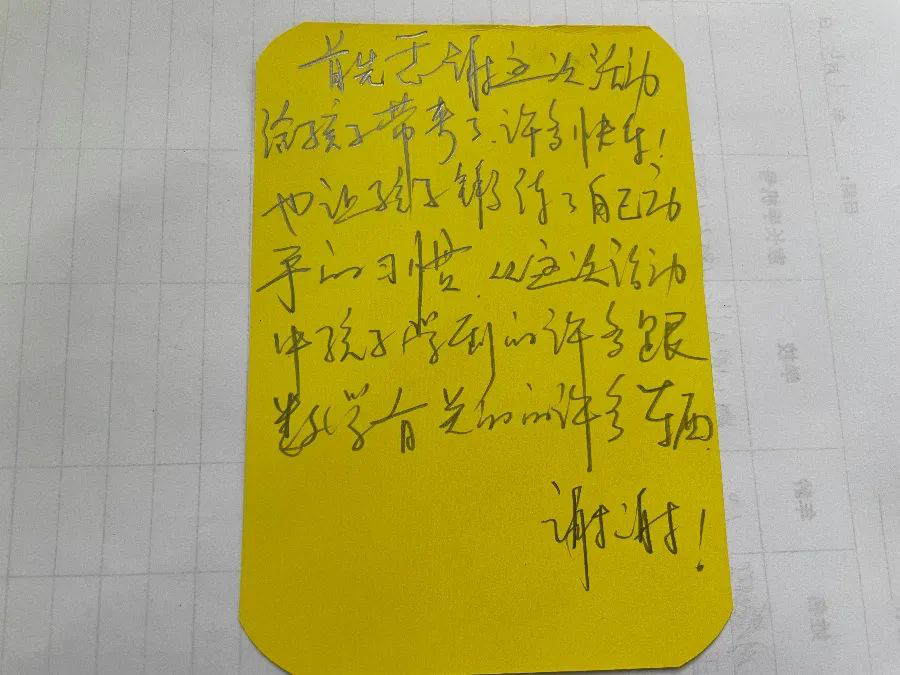 首先感谢这次活动
给孩子带来了许多快乐!
也让孩子锻练了自己动
手的习惯.从这次活动
中孩子学到的许多跟
数学有关的的许多东西.
谢谢!